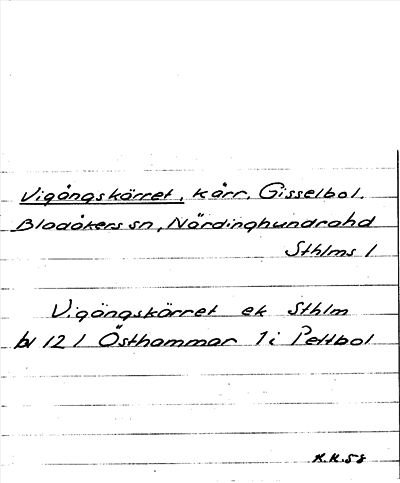 Vigångskärret, kärr, Gisselbol.
Bladåkers sn, Närdinghundrahd
Sthlms l
Vigångskärret ek Sthlm
bl 121 Östhammar 1i Pettbol
K.K.58